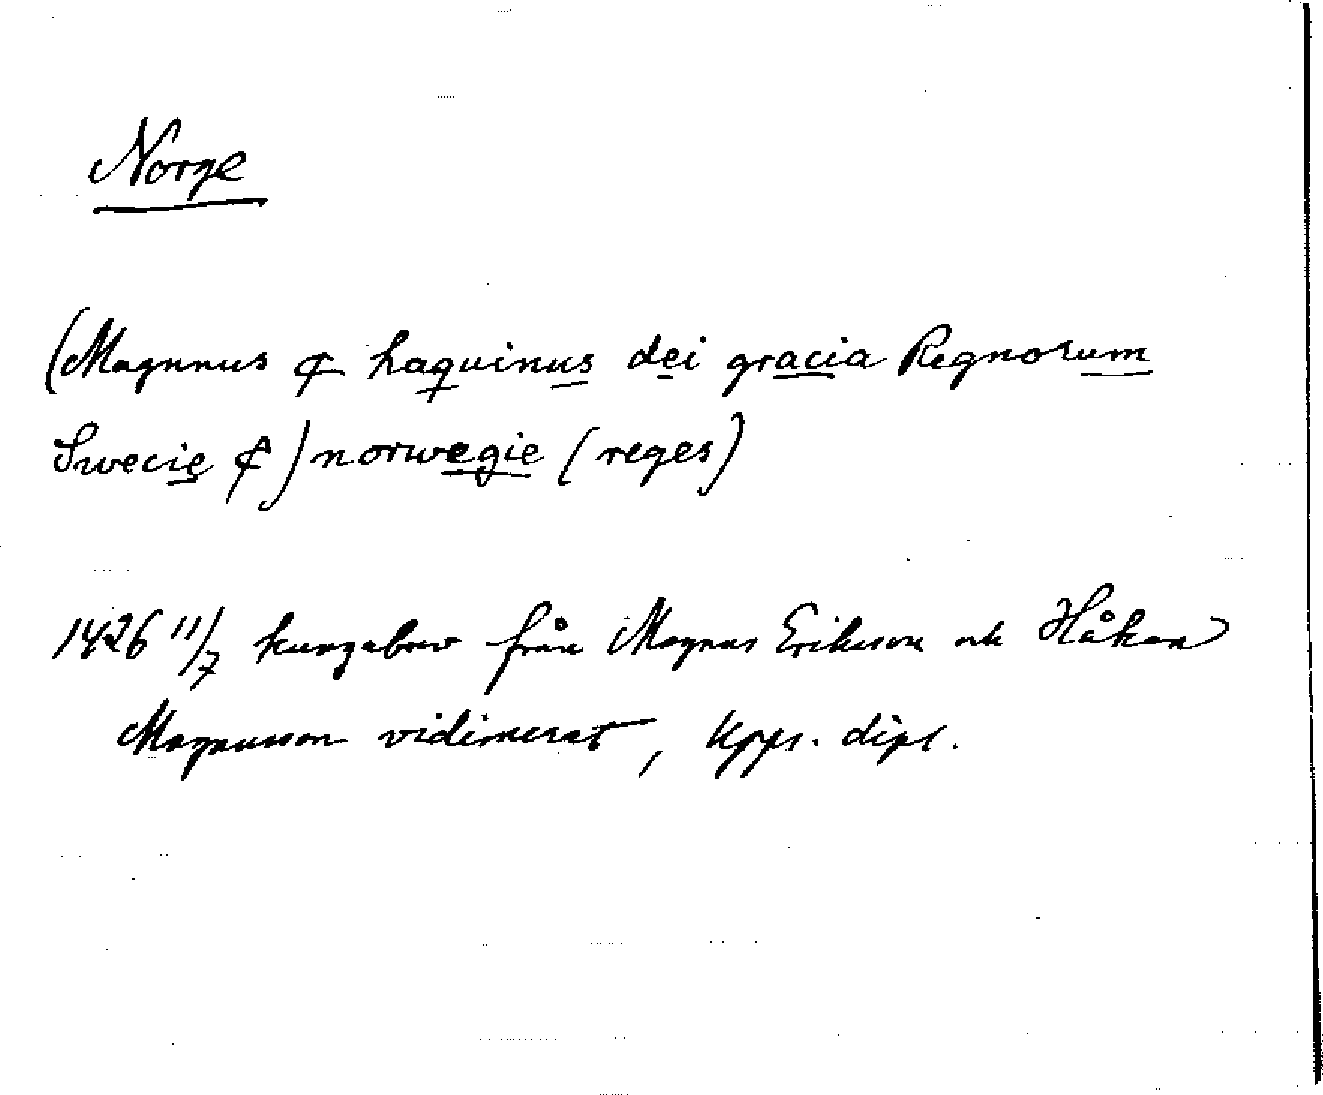 Norge
(Magnnus & haquinus dei gracia Regnorum
Swecie &) norwegie (reges)
1426 11/7 kungabrev från Magnus Eriksson och Håkan
Magnusson vidimerat, Kpps. dipl.